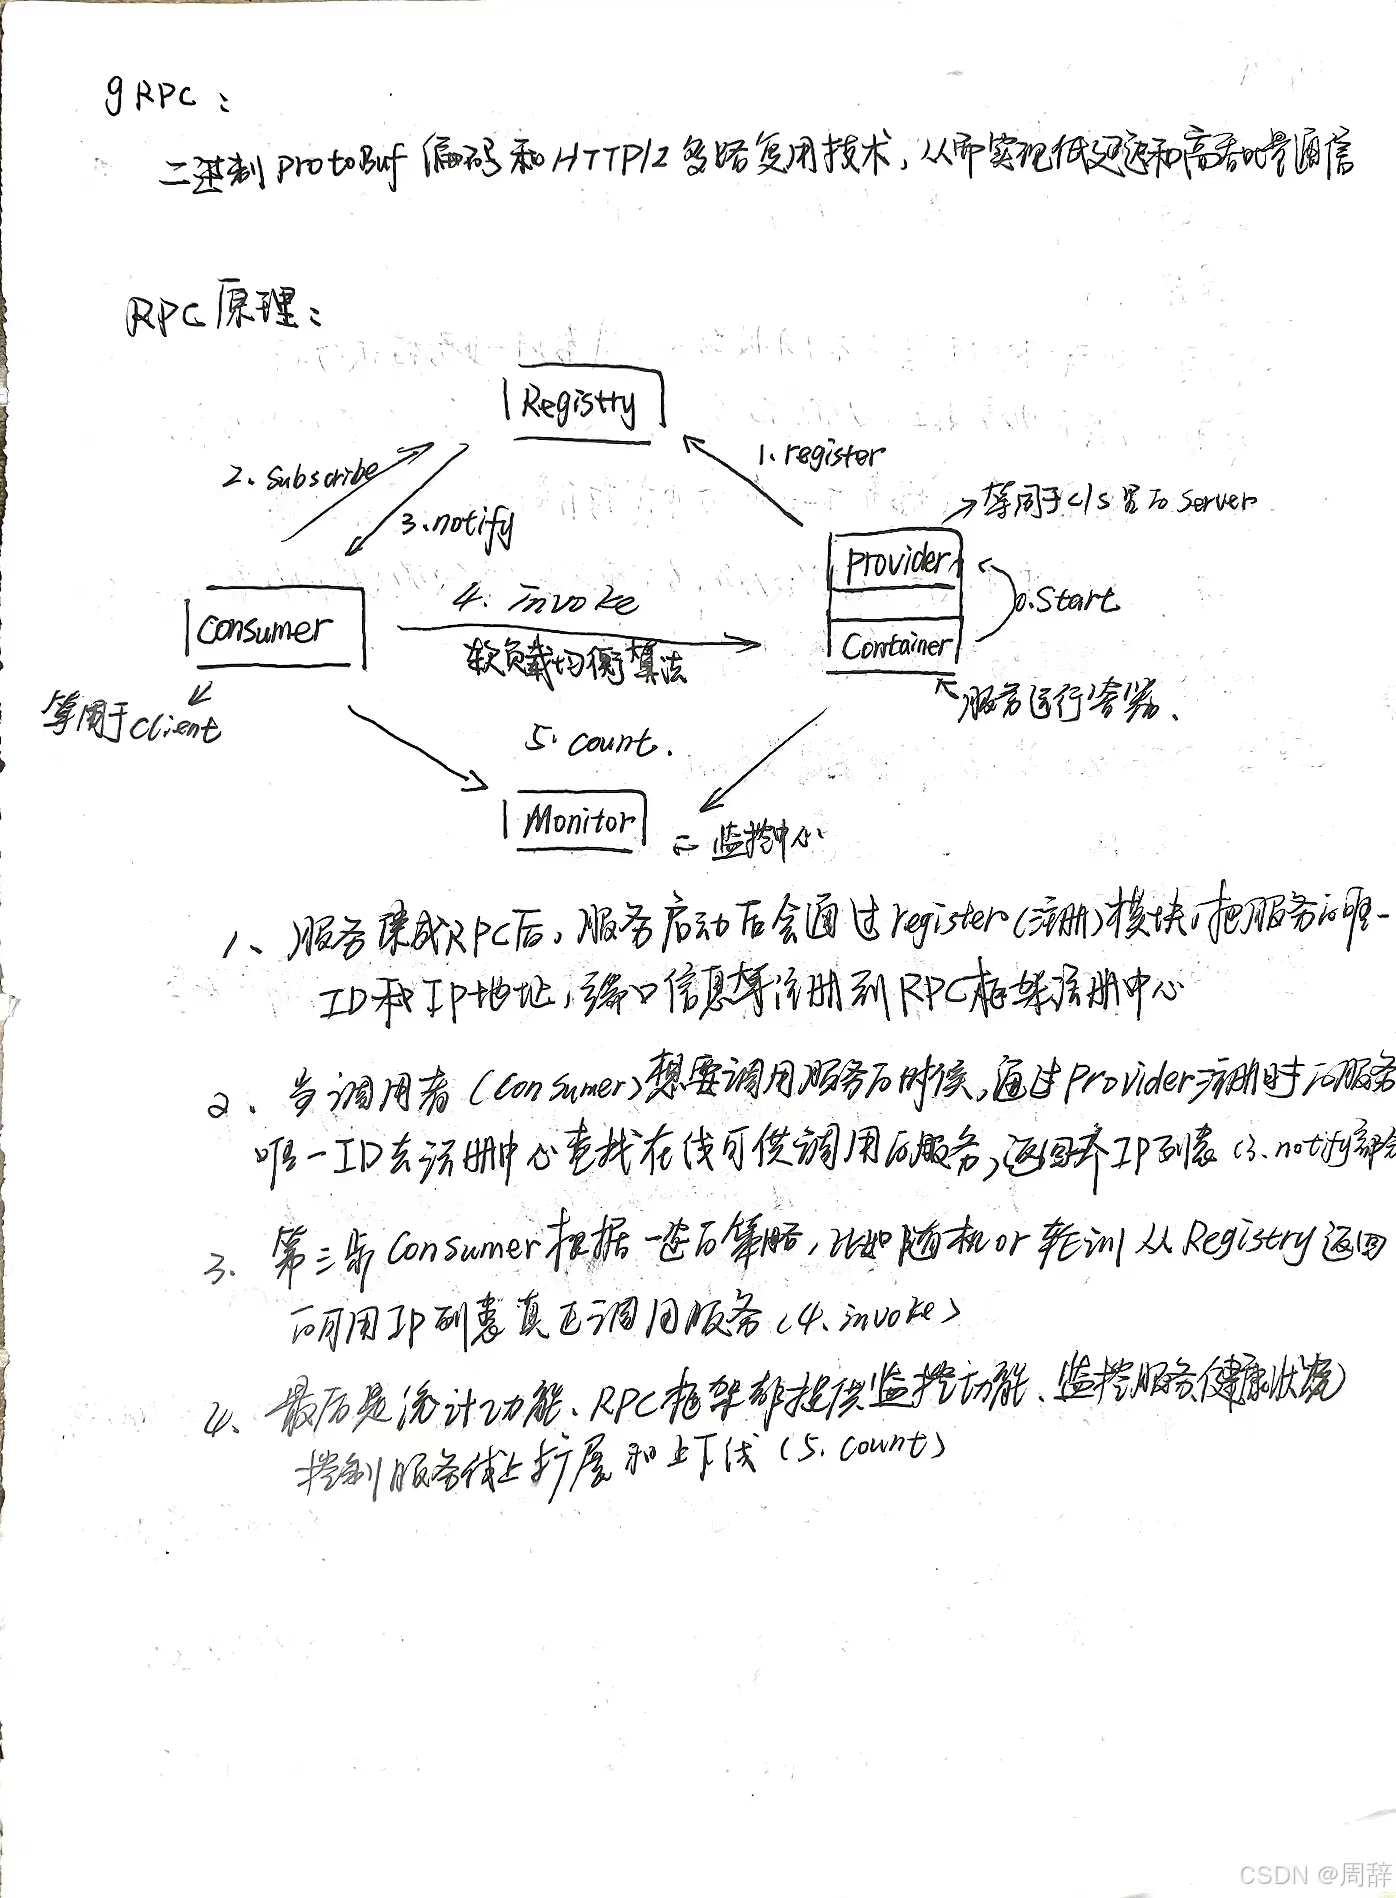 gRPC：
二进制ProtoBuf 编码和HTTP/2多路复用技术，从而实现低延迟和高吞吐量通信
RPC原理：
Registry
2. Subscribe
1. register
3. notify
→等同于C/S里的Server
Provider
4. invoke
0. Start
Consumer
软负载均衡算法
Container
服务运行容器、
等同于Client
5. count.
Monitor
监控中心
1、服务集成RPC后，服务启动后会通过register(注册)模块，把服务的唯一
ID和IP地址，端口信息等注册到RPC框架注册中心
2、当调用者（Consumer）想要调用服务的时候，通过Provider注册时的服务
唯一ID去注册中心查找在线可供调用的服务，返回 IP列表（3.notify部分
3、第三步Consumer根据一定的策略，比如随机or轮训从Registry返回
的可用IP列表真正调用服务（4.invoke）
4、最后是统计功能、RPC框架都提供监控功能、监控服务健康状况
控制服务线上扩展和上下线（5.count）
CSDN @周辞